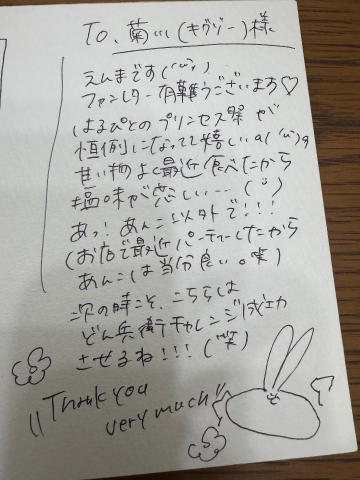 To. 菊い(キグゾー)様
えんまです(^^)
ファンレター有難うございます♡
はるぴとのプリンセス祭が
恒例になってて嬉しい
甘い物よく最近食べたから
塩味が恋しい…
あっ!あんこ以外で!!!
(お店で最近パーティーしたから
あんこは当分良い。笑)
次の時こそ、こちらは
どん兵衛チャレンジ成功
させるね!!!(笑)
"Thank you
very much"